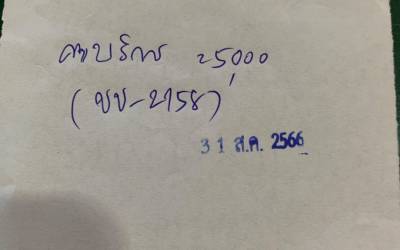 ค่าบริการ 25,000
(ขข-2158)
31 ส.ค. 2566